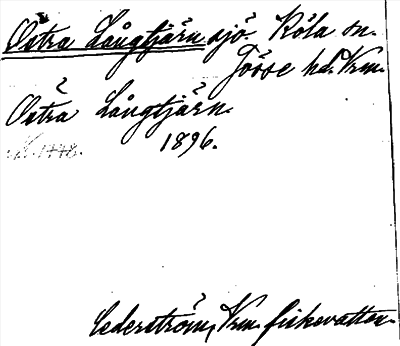 Östra Långtjärn sjö Köla sn.
Jösse hd. Vrm.
Östra Långtjärn.
1896.
Cederström, Vrm. fiskevatten.